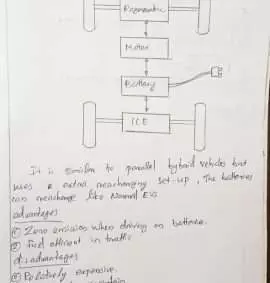 Motor
Battery
ICE
It is similar to parallel hybrid vehicles but
uses a recharging set-up, The batteries
can recharge like Normal EVs
advantages
① Zero emission when driving on batteries.
② Fuel efficient in traffic
disadvantages
① Relatively expensive.